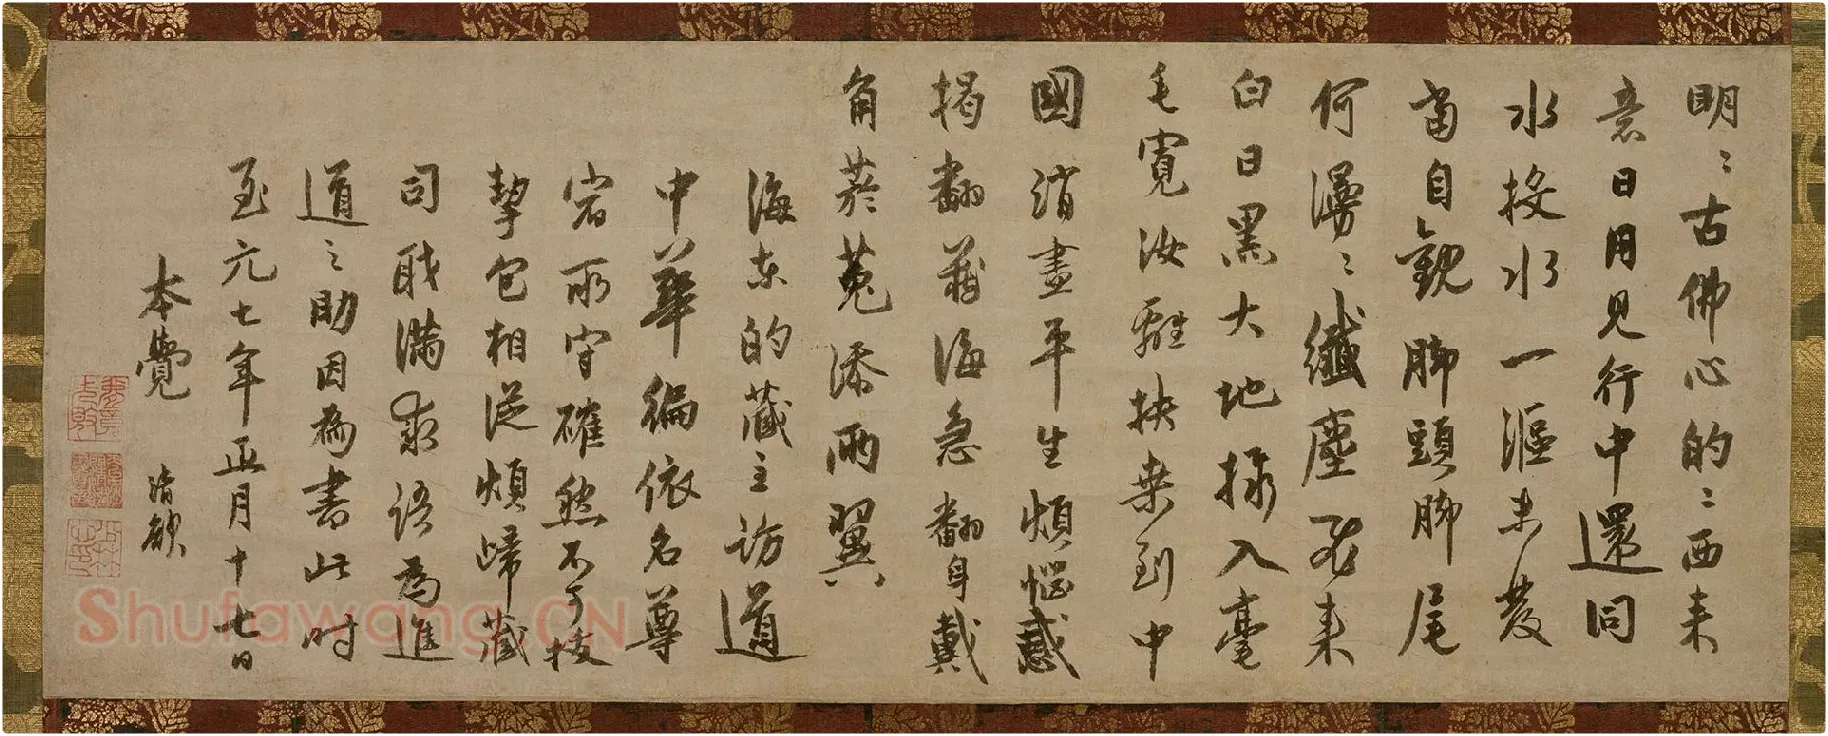 明〻古佛心的〻西来
意日用見行中還同
水投水一漚未發
當自観脚頭脚尾
何漫〻纖塵不来
白日黒大地撮入毫
毛寛汝雖扶桒到中
國消盡平生煩惱惑
掲翻藏海急翻身戴
角菸菟添兩翼
海东的藏主訪道
中華徧依名尊
宿所守確然不可拔
挈包相従煩歸藏
司職満求語為進
道之助因為書此时
至元七年正月十七日
本覺 清欲
Shufawang.CN